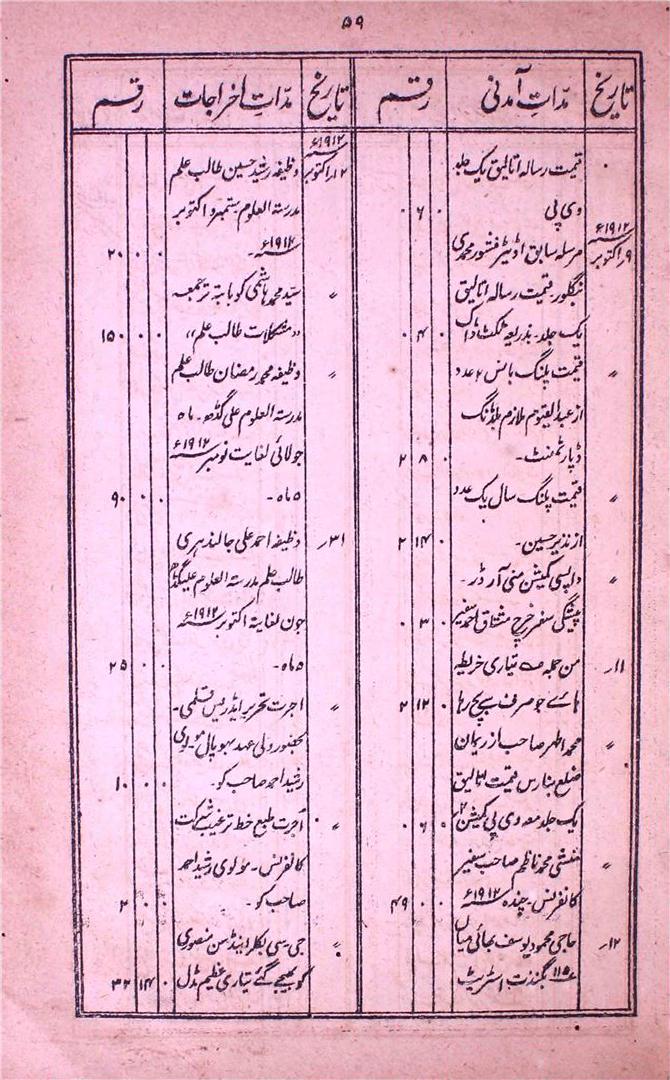 ۵۹
تاریخ
مدّاتِ آمدنی
رقم
تاریخ
مدّاتِ اخراجات
رقم
قیمت رسالہ اتالیق یک جلد
وی پی
۰ ۶ ۰
۱۹۱۲ء
۹؍اکتوبر
مرسلہ سابق اڈیٹر منشور محمدی
بنگلور۔ قیمت رسالہ اتالیق
یک جلد۔ بذریعہ ٹکٹ ڈاک
۰ ۴ ۰
〃
قیمت پلنگ بانس ۲ عدد
از عبدالقیوم ملازم بلڈنگ
ڈپارٹمنٹ۔
۲ ۸ ۰
〃
قیمت پلنگ سال یک عدد
از نذیر حسین۔
۲ ۱۴ ۰
〃
واپسی کمیشن منی آرڈر۔
پیشگی سفر خرچ مشتاق احمد سفیر
۰ ۳ ۰
۱۱؍
من جملہ تیاری خریطہ
ہائے جو صرف سے بچ رہا
۲ ۱۲ ۰
〃
محمد اطہر صاحب از
ضلع بنارس قیمت اتالیق
یک جلد معہ وی پی کمیشن
۰ ۶ ۰
〃
منشی محمد ناظم صاحب سفیر
کانفرنس۔ چندہ ۱۹۱۲ء
۴۹ ۰ ۰
۱۲؍
حاجی محمود یوسف بھائی میاں
۱۱۵ اسٹریٹ
۱۹۱۲ء
۲؍اکتوبر
وظیفہ رشید حسین طالب علم
مدرستہ العلوم ستمبر و اکتوبر
۱۹۱۲ء۔
۲۰ ۰ ۰
〃
سیّد محمد ہاشمی کو بابتہ ترجمہ
”مشکلات طالب علم“
۱۵۰ ۰ ۰
〃
وظیفہ محمد رمضان طالب علم
مدرستہ العلوم علی گڈھ۔ ماہ
جولائی لغایت نومبر ۱۹۱۲ء
۵ ماہ۔
۹۰ ۰ ۰
۳۱؍
وظیفہ احمد علی جالندہری
طالب علم مدرستہ العلوم علیگڈھ
جون لغایتہ اکتوبر ۱۹۱۲ء
۵ ماہ۔
۲۵ ۰ ۰
〃
اجرت تحریر ایڈریس قلمی۔
بحضور ولی عہد بھوپال مولوی
رشید احمد صاحب کو۔
۱۰ ۰ ۰
〃
اُجرت طبع خط ترغیب شرکت
کانفرنس۔ مولوی رشید احمد
صاحب کو۔
۲ ۰ ۰
〃
جی۔ سی اینڈ سن منصوری
کو بھیجے گئے تیاری عظیم مڈل
۳۲ ۱۴ ۰